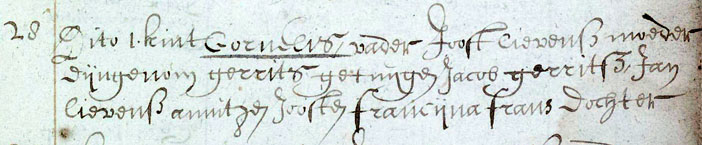 28 Dito 1. kint Cornelis, vader Joost lievensz moeder
dijngenom gerrits getuigen Jacob gerritsz, Jan
lievensz annitgen Joosten francijna frans dochter